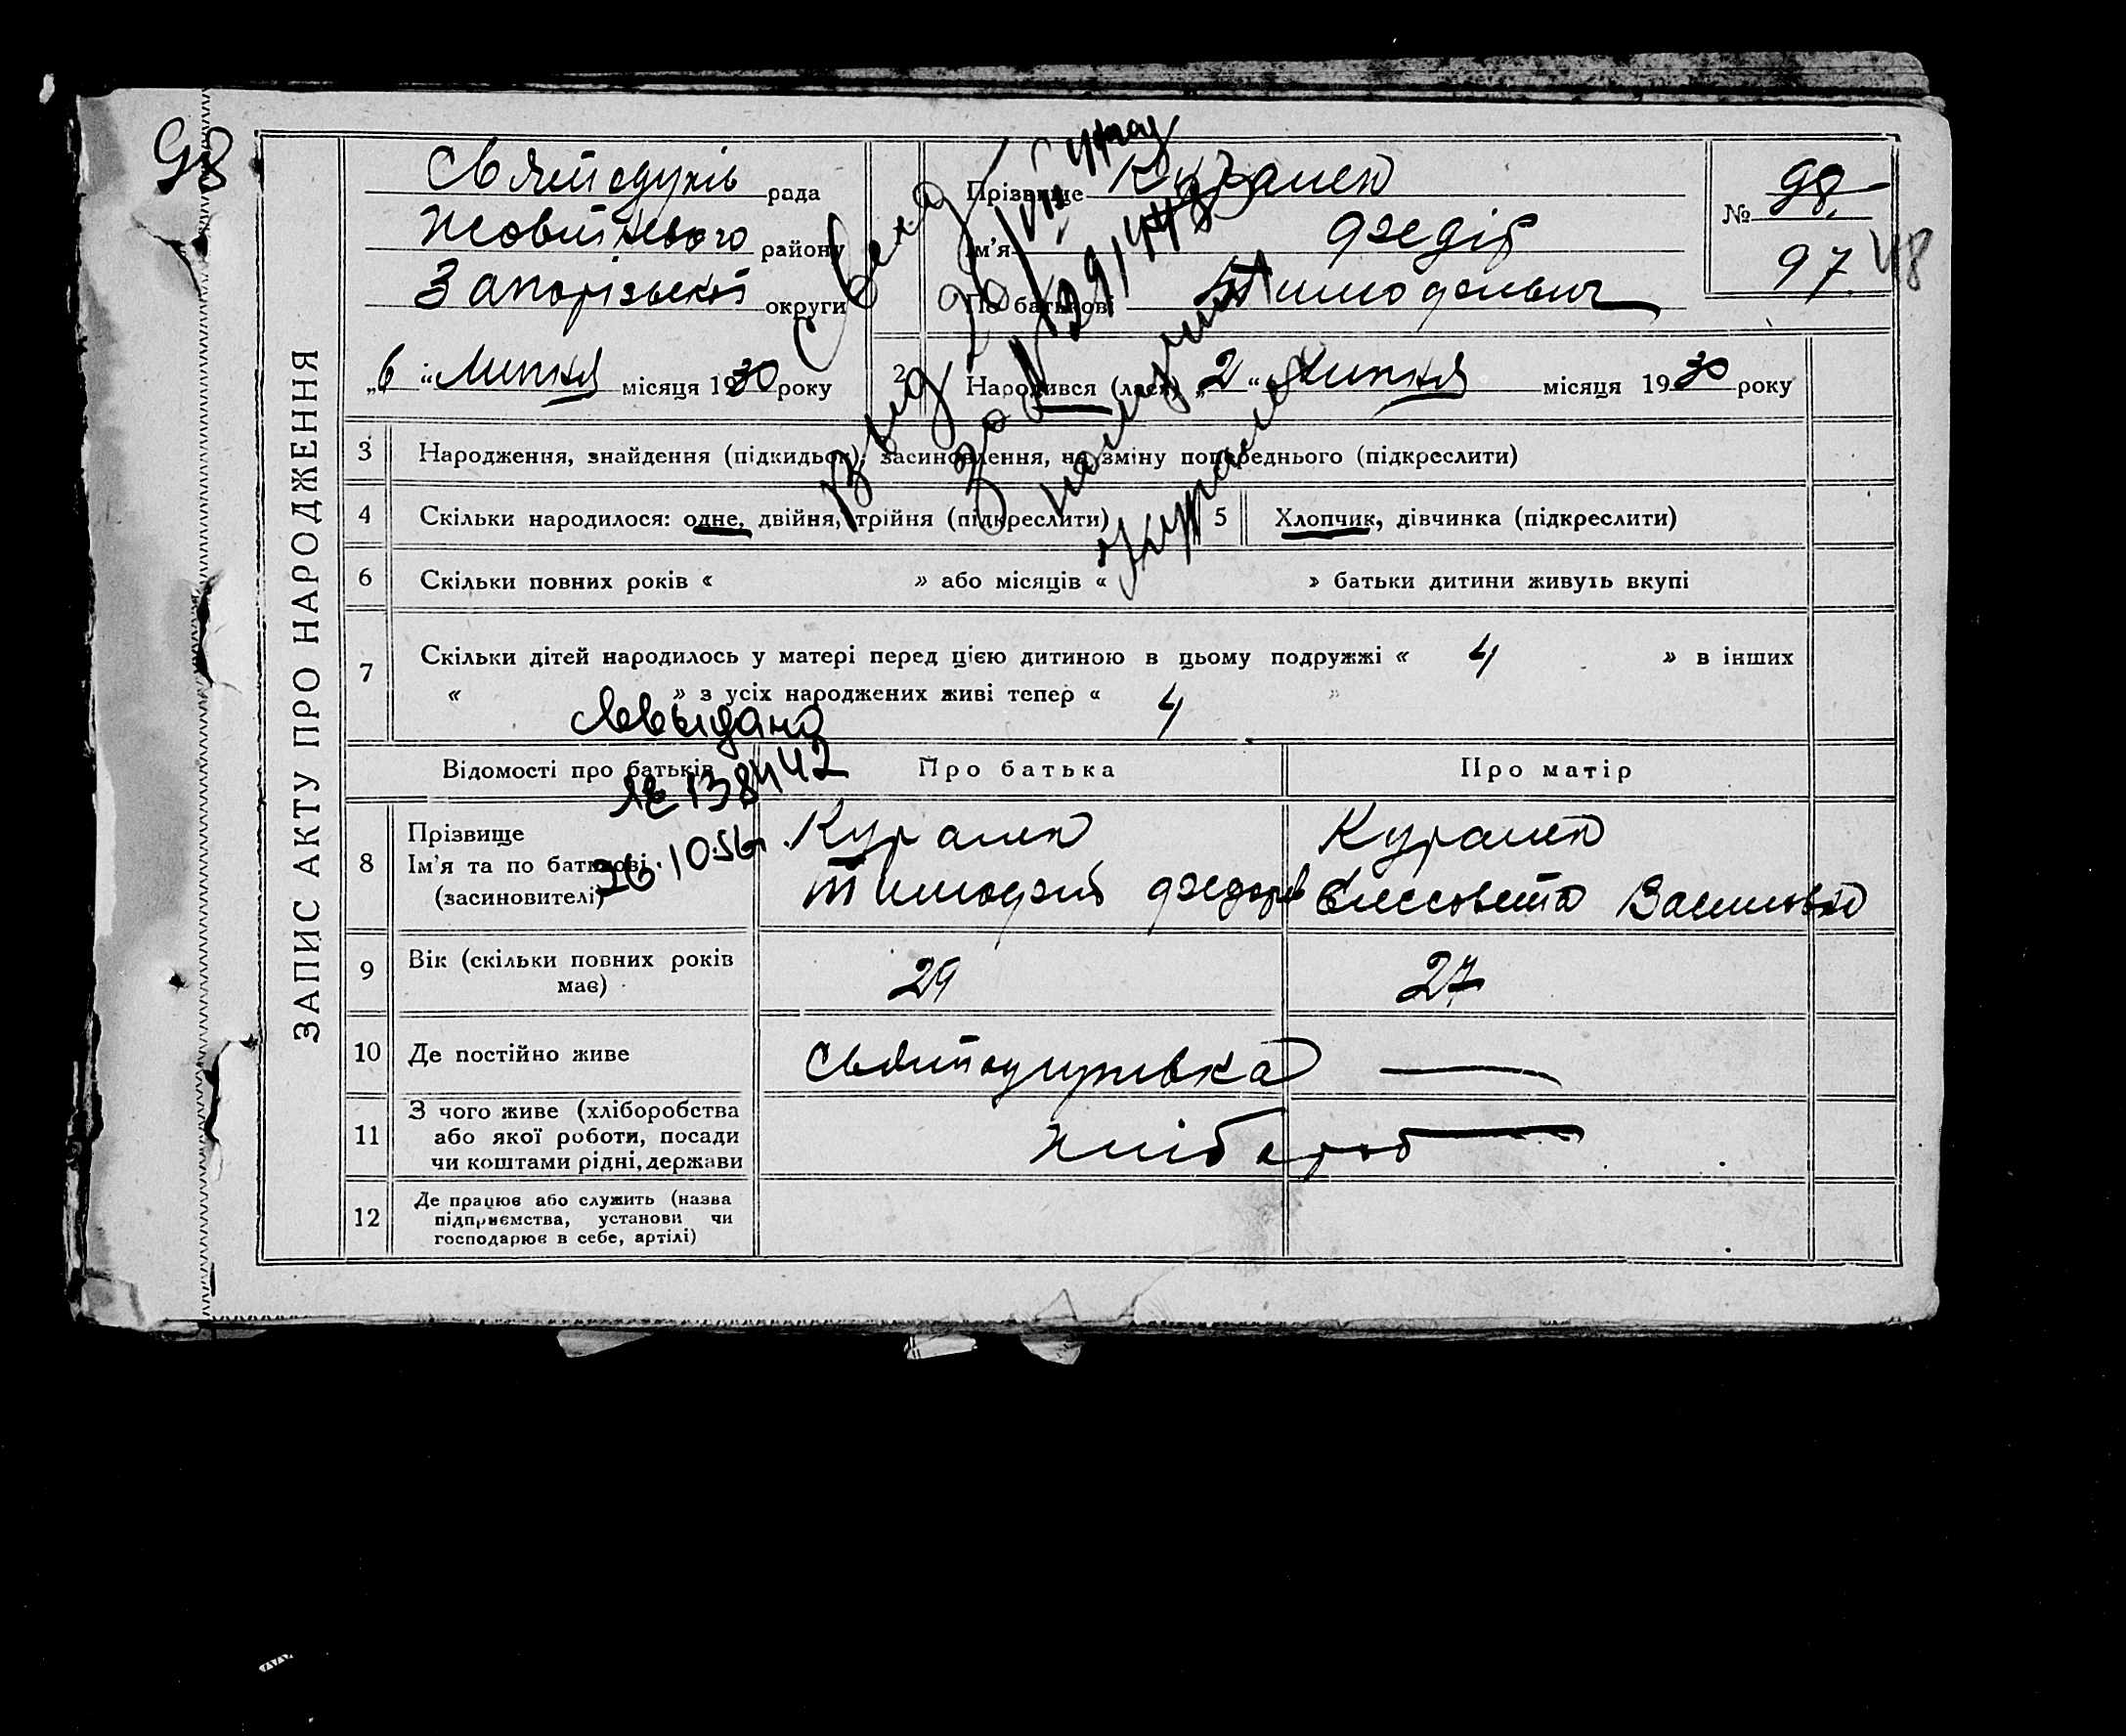 98
ЗАПИС АКТУ ПРО НАРОДЖЕННЯ
Святодухів рада
Жовтневого району
Запорізької округи
„6“ Липня місяця 1930 року
Прізвище Курапен
Ім'я Федір
По батькові Тимофеевич
№ 98
97
2 Народився (лась) „2“ Липня місяця 1930 року
3 Народження, знайдення (підкидьок), засиновлення, на зміну попереднього (підкреслити)
4 Скільки народилося: одне, двійня, трійня (підкреслити) 5 Хлопчик, дівчинка (підкреслити)
6 Скільки повних років « » або місяців « » батьки дитини живуть вкупі
7 Скільки дітей народилось у матері перед цією дитиною в цьому подружжі « 4 » в інших
« » з усіх народжених живі тепер « 4 »
выдано
138442
26.10.56г.
Відомості про батьків Про батька Про матір
8 Прізвище
Ім'я та по батькові
(засиновителі)
Курапен
Тимофей Федоров
Курапен
Елесовета Василовна
9 Вік (скільки повних років має) 29 27
10 Де постійно живе Святодухивка —
11 З чого живе (хліборобства
або якої роботи, посади
чи коштами рідні, держави
хлібороб
12 Де працює або служить (назва
підприємства, установи чи
господарює в себе, артілі)